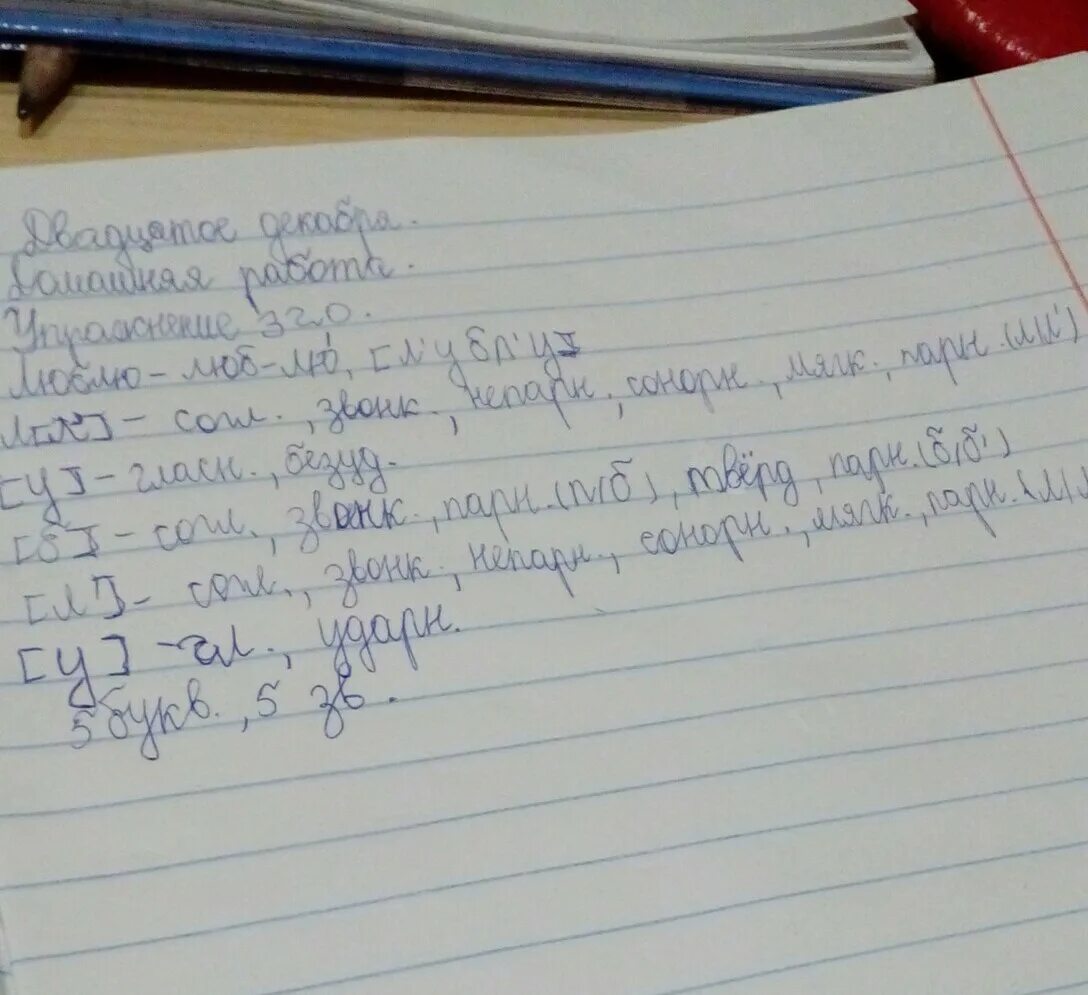 Двадцатое декабря.
Домашняя работа.
Упражнение 320.
Люблю - люб-лю́, [л'убл'у]
Л[л'] - согл., звонк., непарн., сонорн., мягк., парн. (л/л')
[у] - гласн., безуд.
[б] - согл., звонк., парн. (п/б), твёрд, парн. (б/б')
[л'] - согл., звонк., непарн., сонорн., мягк., парн. (л/л
[у] - гл., ударн.
5 букв., 5 зв.